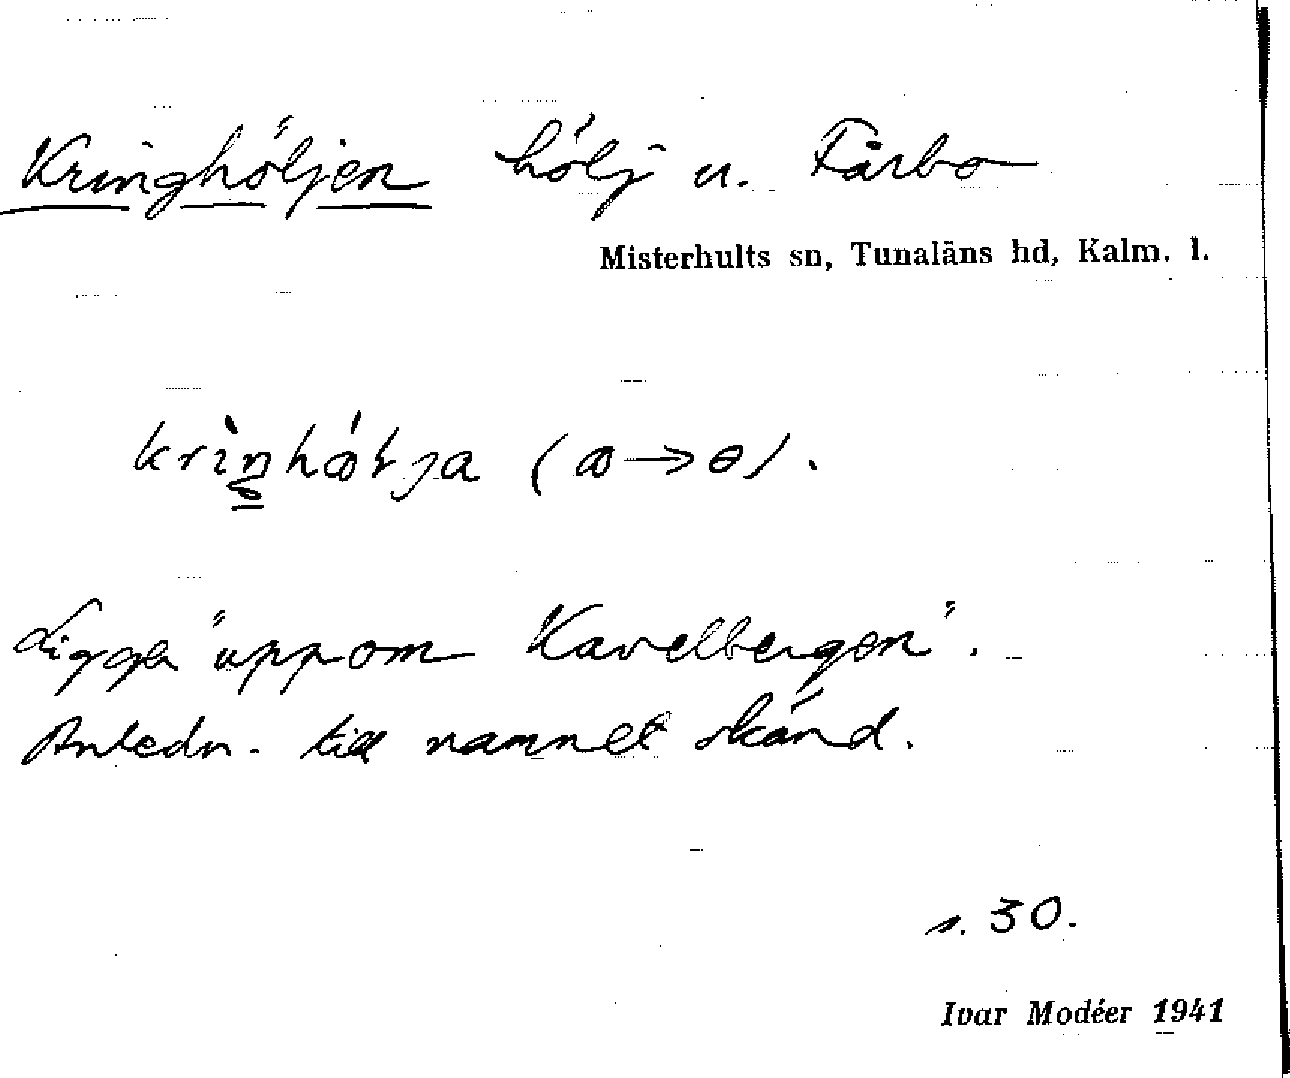 Kringhöljen hölj u. Fårbo
Misterhults sn, Tunaläns hd, Kalm. l.
Ligger "uppom Kavelbergen".
Anledn. till namnet okänd.
s. 30.
Ivar Modéer 1941